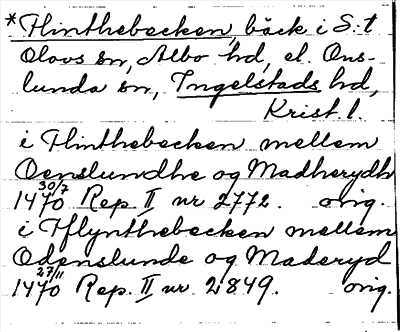 *Hinthebecken, bäck i S:t
Olovs sn, Albo hd, el. Ons-
lunda sn, Ingelstads hd,
Krist. l.
i Hinthebecken mellem
Oenslundhe og Madherydh
1470 30/7 Rep. II nr 2772. orig.
i Hflynthebecken mellem
Odenslunde og Maderyd
1470 27/11 Rep. II nr. 2849. orig.